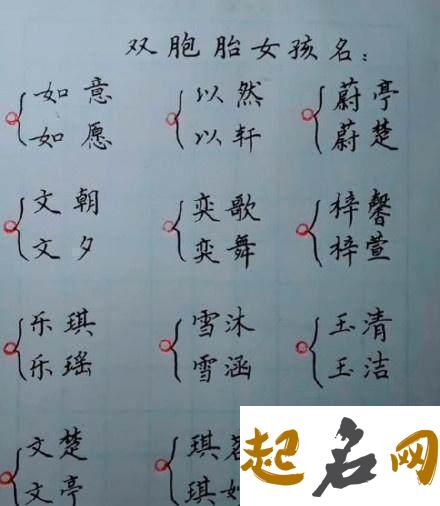 双胞胎女孩名:
如意 以然 蔚亭
如愿 以轩 蔚楚
文朝 奕歌 梓馨
文夕 奕舞 梓萱
乐琪 雪沐 玉清
乐瑶 雪涵 玉洁
文楚 琪
文亭 琪
起名网